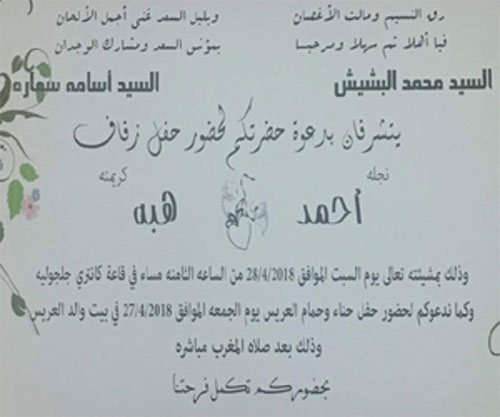 رق النسيم ومالت الأغصان وبليل السعد غنى أجمل الألحان
فيا أهلا تم سهلا ومرحبا بمؤنس السعد ومشارك الوجدان
السيد محمد البشيش السيد أسامه سماره
يتشرفان بدعوة حضرتكم لحضور حفل زفاف
نجله كريمته
أحمد هبه
وذلك بمشيئته تعالى يوم السبت الموافق 28/4/2018 من الساعه الثامنه مساء في قاعة كانتري جلجوليه
وكما ندعوكم لحضور حفل حناء وحمام العريس يوم الجمعه الموافق 27/4/2018 في بيت والد العريس
وذلك بعد صلاه المغرب مباشره
بحضوركم تكمل فرحتنا